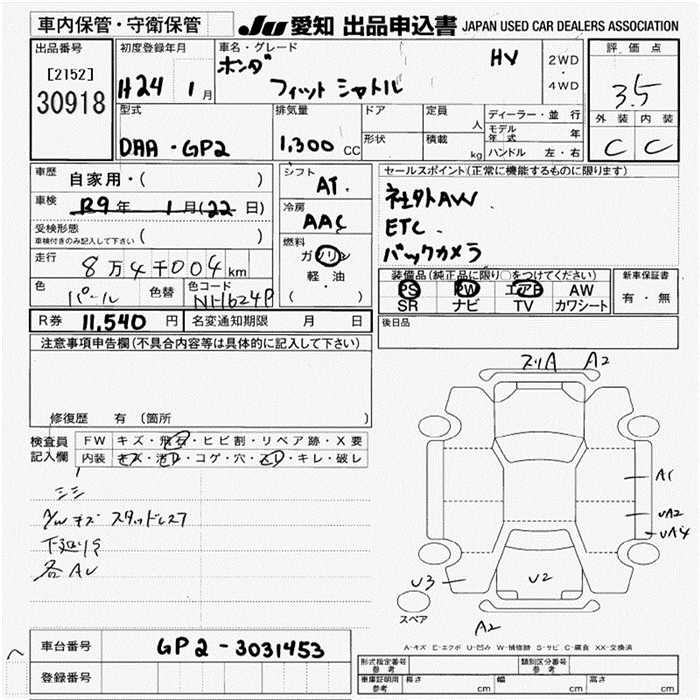 車内保管・守衛保管
JU 愛知 出品申込書 JAPAN USED CAR DEALERS ASSOCIATION
出品番号
[2152]
30918
初度登録年月
H24 1月
車名・グレード
ホンダ
フィットシャトル
HV
2WD
・
4WD
評価点
3.5
外装 内装
C C
型式
DAA・GP2
排気量
1,300 CC
ドア
形状
定員
人
積載
kg
ディーラー・並行
モデル年式 年
ハンドル 左・右
車歴
自家用・( )
車検
R9年 1月(22日)
受検形態
車検付きのみ記入して下さい ( )
走行
8万4千004km
色
パール
色替
色コード
NH624P
シフト
AT.
冷房
AAC
燃料
ガソリン
軽・油
( ・ )
セールスポイント(正常に機能するものに限ります)
社外AW.
ETC.
バックカメラ
装備品(純正品に限り○をつけてください)
PS PW エアB AW
SR ナビ TV カワシート
新車保証書
有・無
R券 11,540 円
名変通知期限 月 日
後日品
注意事項申告欄(不具合内容等は具体的に記入して下さい)
修復歴 有(箇所
検査員
記入欄
FW キズ・飛石・ヒビ割・リペア跡・X要
内装 キズ・汚レ・コゲ・穴・スレ・キレ・破レ
シミ
A/Wキズ スタッドレス7
下廻りS
各AU
スリA A2
A1
UA2
UA4
U3
U2
A2
スペア
A-キズ E-エクボ U-凹み W-補修跡 S-サビ C-腐食 XX-交換済
車台番号
GP2-3031453
登録番号
形式指定番号
参考
類別区分番号
参考
車庫証明用
参考
長さ cm
幅 cm
高さ cm